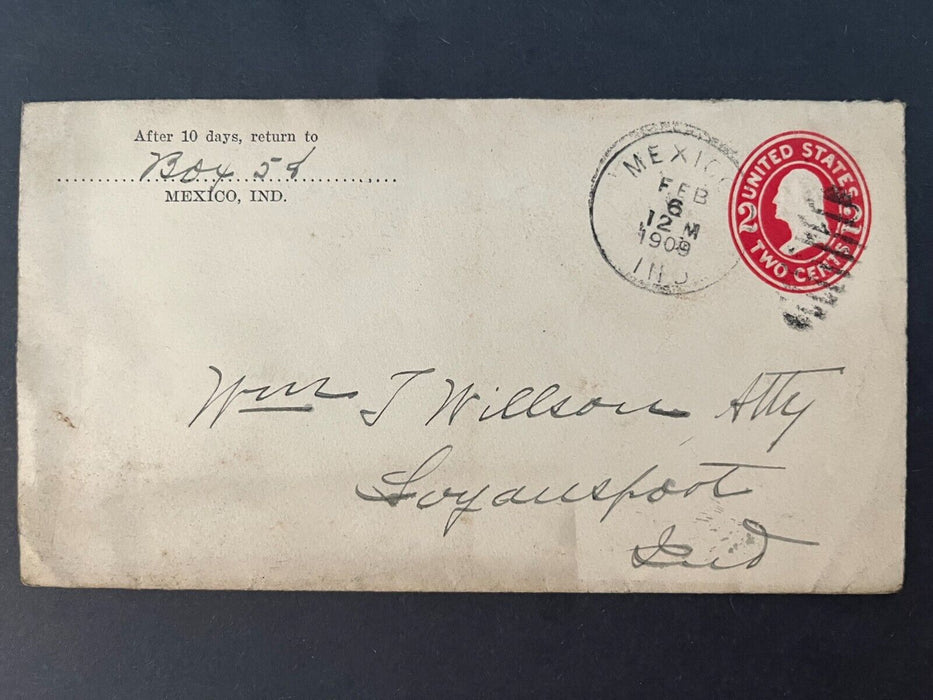 After 10 days, return to
Box 58
MEXICO, IND.
MEXICO
FEB
6
12 M
1909
IND.
UNITED STATES
2 2
TWO CENTS
Wm T Willson Atty
Loganspoot
Ind